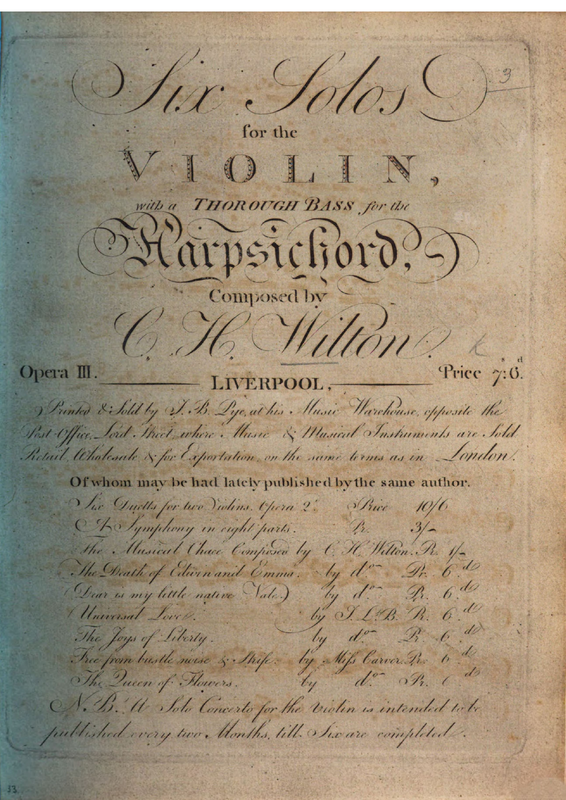 3
Six Solos
for the
VIOLIN,
with a THOROUGH BASS for the
Harpsichord,
Composed by
C. H. Wilton.
Opera III. Price 7s:6d.
LIVERPOOL,
Printed & Sold by J. B. Pye, at his Music Warehouse, opposite the
Post Office, Lord Street, where Music & Musical Instruments are Sold
Retail, Wholesale & for Exportation, on the same terms as in London.
Of whom may be had lately published by the same author.
Six Duetts for two Violins. Opera 2d Price 10/6
A Symphony in eight parts. Pr. 3/-
The Musical Chace Composed by C. H. Wilton. Pr. 1/-
The Death of Edwin and Emma. by do. Pr. 6d
(Dear is my little native Vale.) by do. Pr. 6d
Universal Love. by J. L. B. Pr. 6d
The Joys of Liberty. by do. Pr. 6d
Free from bustle noise & Strife. by Miss Carver. Pr. 6d
The Queen of Flowers. by do. Pr. 6d
N. B. A Solo Concerto for the Violin is intended to be
published every two Months, till Six are completed.
13